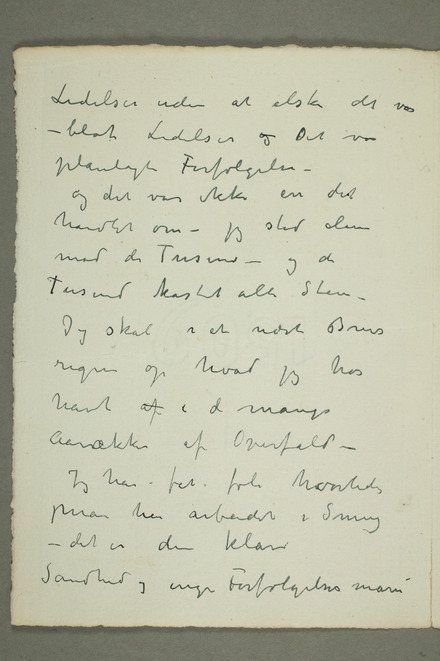 Lidelser uden at elske det var
– blot Lidelser og Det var
planlagte Forfølgelse –
og det var ikke en det
handlet om – jeg stod alene
mod de Tusind – og de
Tusind kastet alle Sten –
Jeg skal i et næste Brev
regne op hvad jeg har
havt af i de mange
Aarrækker af Overfald –
Jeg har fåt føle hvorledes
man har arbeidet i Smug
– det er den klare
Sandhed og ingen Forfølgelses mani